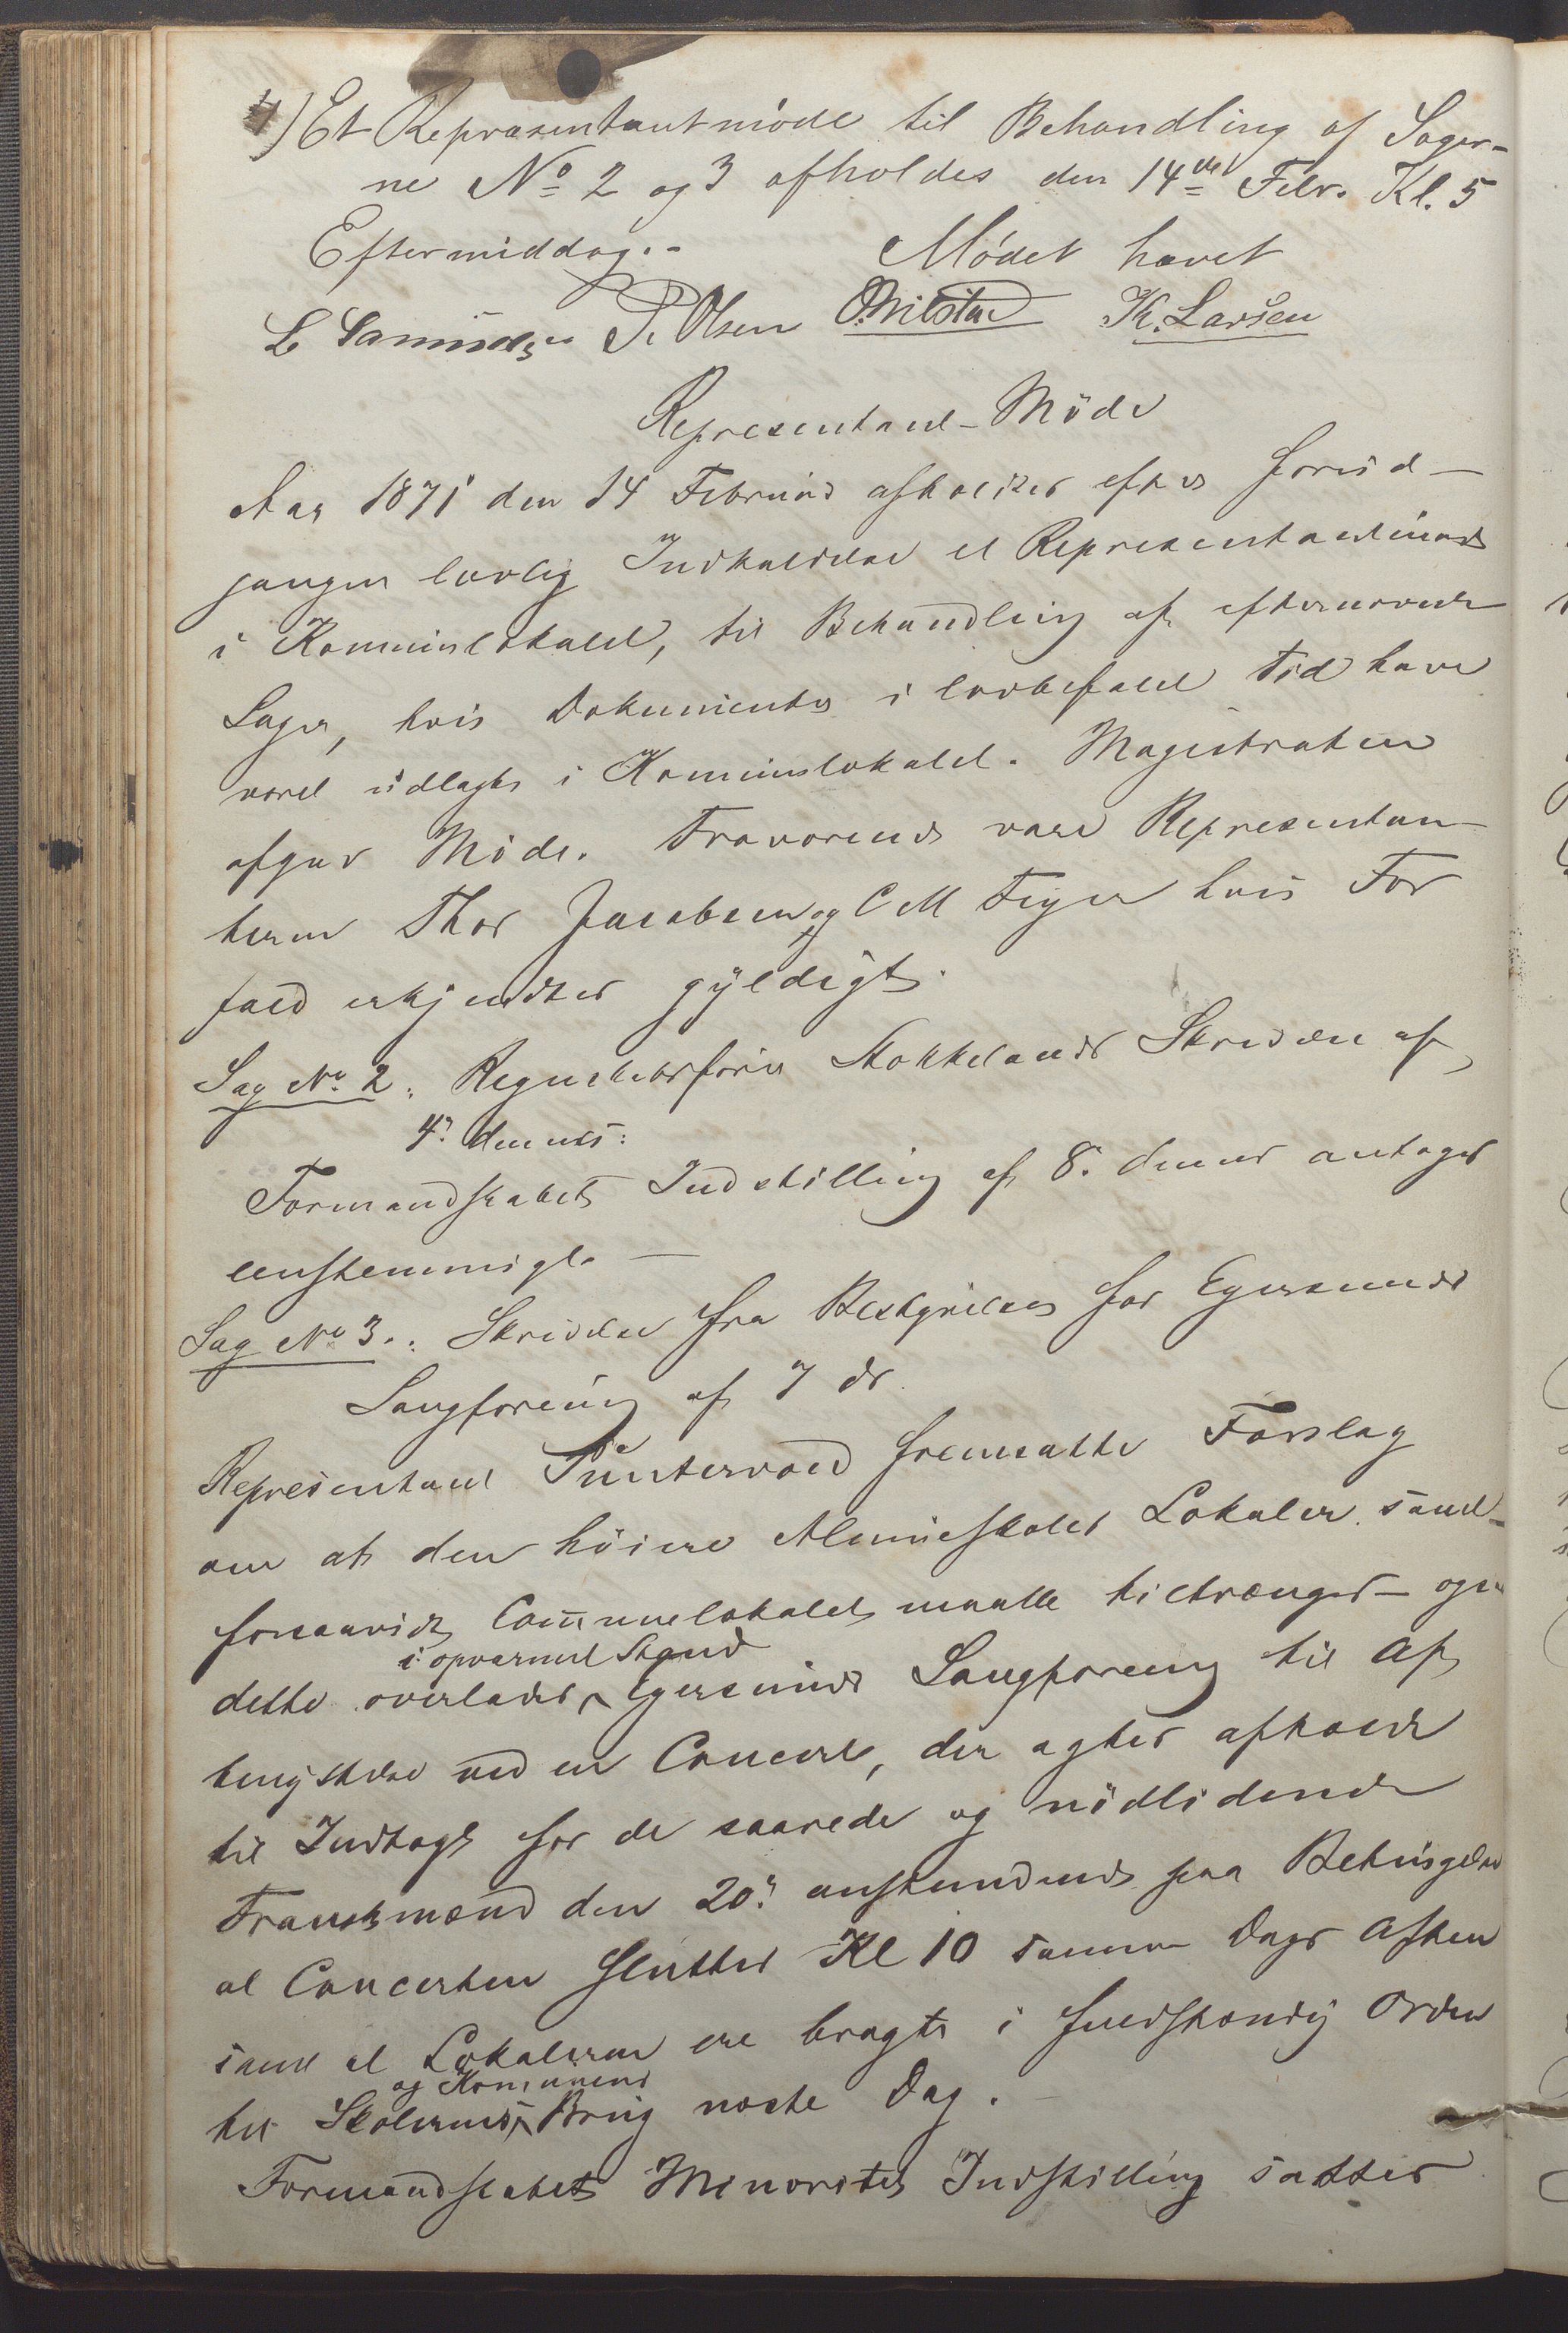 4) Et Repræsentantmöde til Behandling af Sager-
ne No 2 og 3 afholdes den 14de Febr. Kl. 5
Eftermiddag.- Mödet hævet
P. Olsen K. Larsen
Representant-Möde
Aar 1871 den 14 Februar afholdtes efter forud-
gangen lovlig Indkaldelse et Representantmøde
i Kommunelokalet, til Behandling af efternævnte
Sager, hvis Dokumenter i lovbefalet Tid have
været udlagte i Kommunelokalet. Magistraten
afgav Møde. Fraværende vare Representan-
terne Thor Jacobsen og C M Feyer hvis For
fald erkjendtes gyldigt.
Sag No 2: Regnskabsfører Stokkelands Skrivelse af
4. dennes:
Formandskabets Indstilling af 8. dennes antages
eenstemmigt. —
Sag No 3.: Skrivelse fra Bestyrelsen for Egersunds
Sangforening af 7 ds.
Representant Puntervold fremsatte Forslag
om at den höiere Almueskoles Lokaler samt
forsaavidt Communelokalet maatte tiltrænges - og
i opvarmet Stand
dette overlades Egersunds Sangforening til Af
benyttelse ved en Concert, der agtes afholdt
til Indtægt for de saarede og nödlidende
Franskmænd den 20. anstundende paa Betingelse
at Concerten sluttes Kl 10 samme Dags Aften
samt at Lokalerne ere bragte i fuldstændig Orden
og Kommunens
til Skolernes Brug næste Dag. -
Formandskabets Minoritets Indstilling sattes